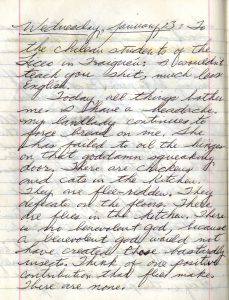 Wednesday, January 23: To
the chilean students of the
Liceo in Traiguén: I wouldn't
teach you shit, much less
English.
Today, all things bother
me. I have a headache.
My landlady continues to
forge bread on me. She
has failed to oil the hinges
on that goddamn squeaking
door. There are chickens
and cats in the kitchen.
They are flee-ridden. They
defecate on the floors. There
are flies in the kitchen. There
is no benevolent god, because
a benevolent god would not
have created those bastardly
insects. Think of one positive
contribution that flies make.
There are none.